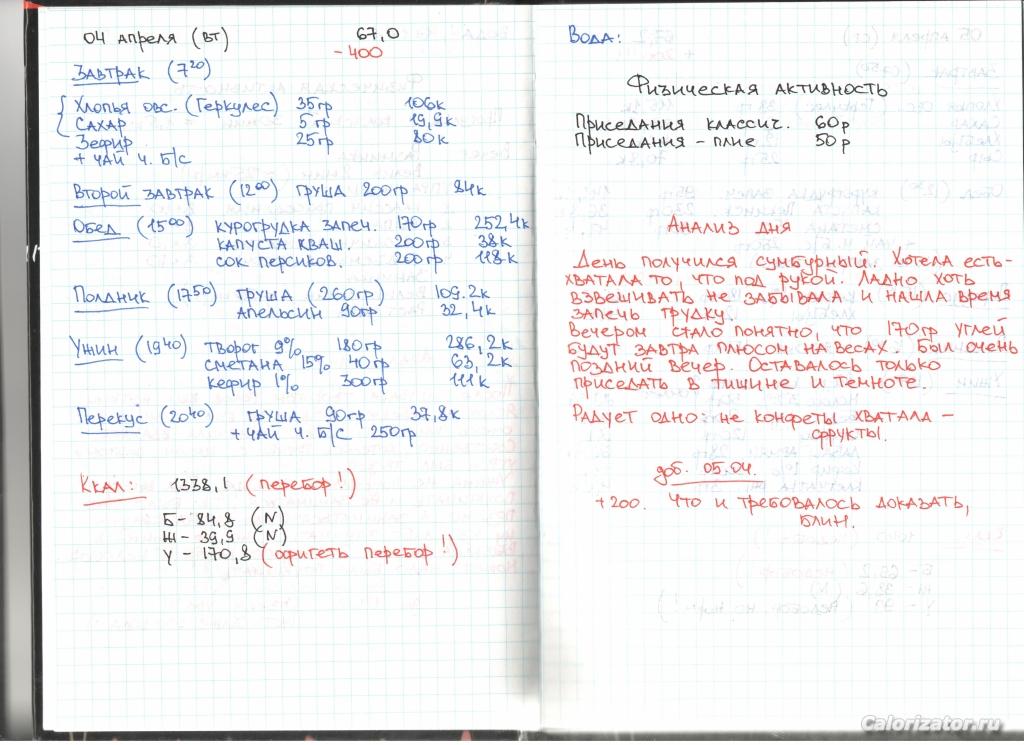 04 апреля (вт) 67,0
-400
Завтрак (7²⁰)
Хлопья овс. (Геркулес) 35гр 106к
Сахар 5гр 19,9к
Зефир 25гр 80к
+ чай ч. б/с
Второй завтрак (12⁰⁰) груша 200гр 84к
Обед (15⁰⁰) курогрудка запеч. 170гр 252,4к
капуста кваш. 200гр 38к
сок персиков. 200гр 118к
Полдник (17⁵⁰) груша (260гр) 109.2к
апельсин 90гр 32,4к
Ужин (19⁴⁰) творог 9% 180гр 286,2к
сметана 15% 40гр 63,2к
кефир 1% 300гр 111к
Перекус (20⁴⁰) груша 90гр 37,8к
+ чай ч. б/с 250гр
Ккал: 1338,1 (перебор!)
Б- 84,8 (N)
Ж- 39,9 (N)
У - 170,8 (офигеть перебор!)
Вода:
Физическая активность
Приседания классич. 60р
Приседания - плие 50р
Анализ дня
День получился сумбурный. Хотела есть-
хватала то, что под рукой. Ладно хоть
взвешивать не забывала и нашла время
запечь грудку.
Вечером стало понятно, что 170гр углей
будут завтра плюсом на весах. Был очень
поздний вечер. Оставалось только
приседать в тишине и темноте.
Радует одно - не конфеты хватала -
фрукты.
доб. 05.04.
+200. Что и требовалось доказать,
блин.
Calorizator.ru